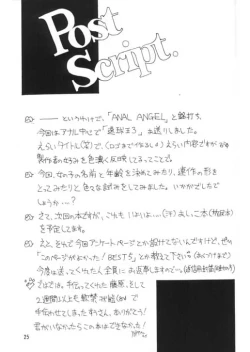 Post
Script.
── というわけで、「ANAL ANGEL」と銘打ち、
今回はアナル中心で「連球まろ」お送りしました。
えらいタイトル(笑)で、(ロゴまで
えらい内容ですが
製作者の好みを色濃く反映してるってことで。
今回、女の子の名前と年齢を決めてみたり、連作の形を
とってみたりと色々な試みをしてみました。いかがでしたで
しょうか…?
さて、次回の本ですが、これも
本
を予定してます。
ええと、それで今回アンケートページとか設けてないんですけど、ぜひ
「このページがよかった!BEST5」とか教えて下さい。
今度は送ってくれた人全員にお返事しますので…。
ではでは、手伝ってくれた藤原、そして
2週間以上も
手伝わせてしまった
さん、ありがとう!
君がいなかったらこの本はできなかった!
25